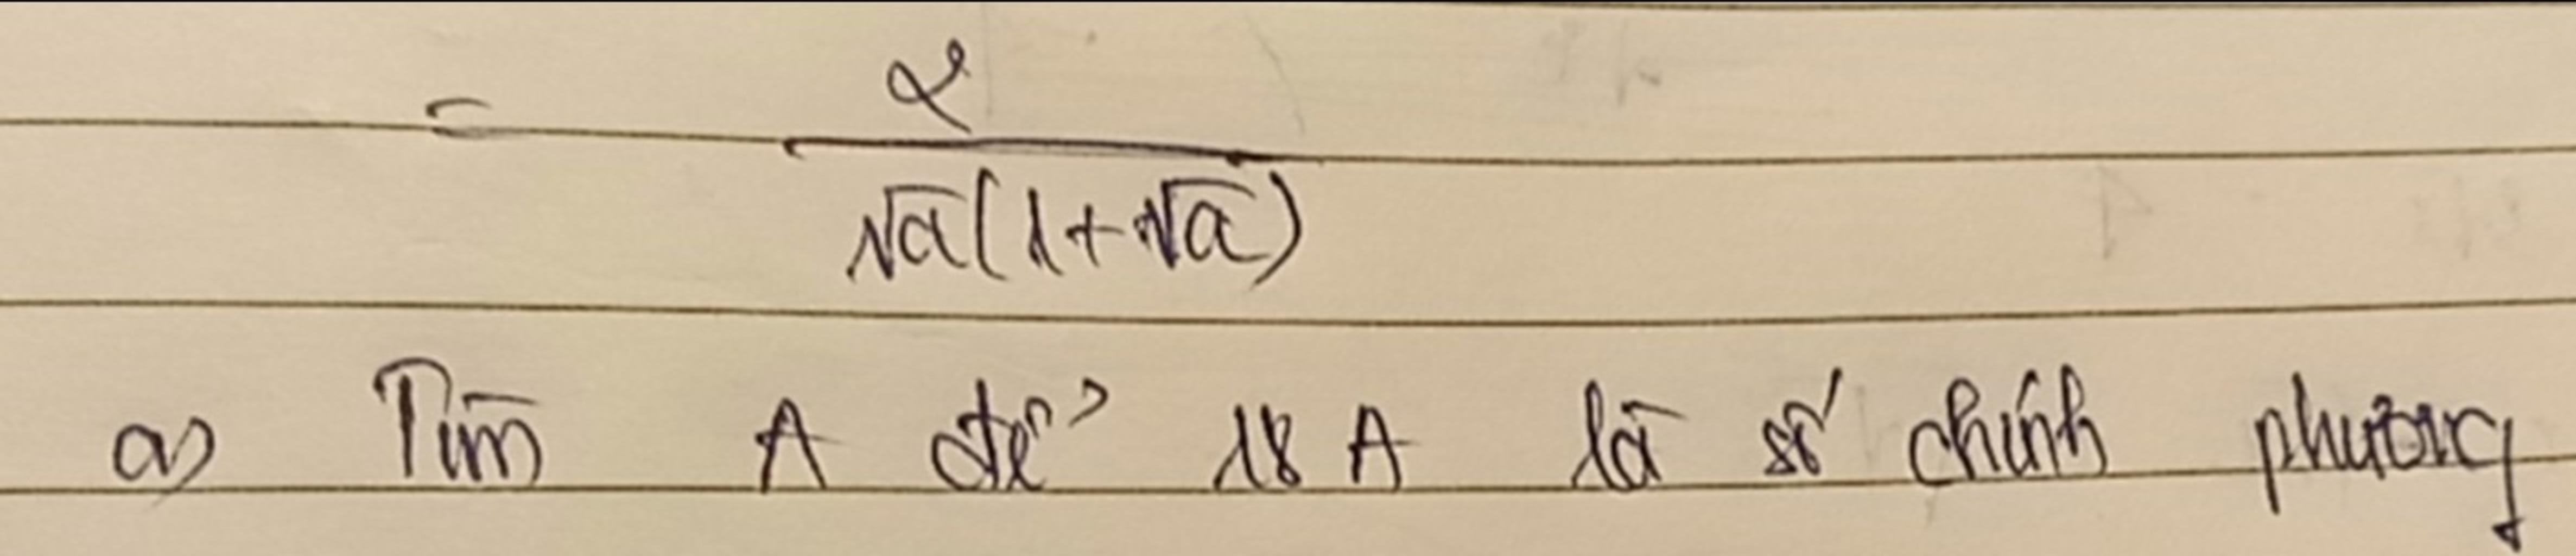 = 2
√a(1+√a)
a) Tìm A để 18 A là số chính phương